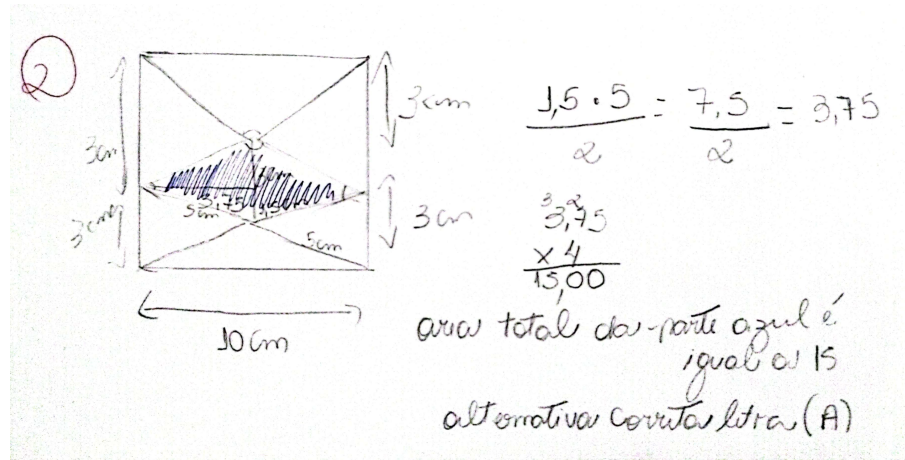 2
3cm
3cm
3cm
3cm
5cm
3,75
1,5
5cm
10cm
1,5 . 5 / 2 = 7,5 / 2 = 3,75
3 2
3,75
x 4
15,00
area total da parte azul é
igual a 15
alternativa correta letra (A)